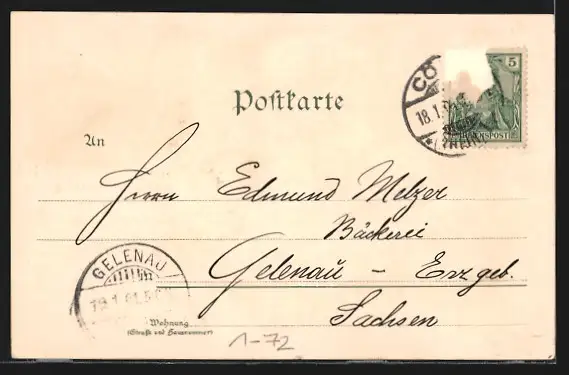 Postkarte
5
CÖ
18.1.
REICHSPOST
An
Herrn Edmund Melzer
Bäckerei
Gelenau – Erzgeb.
Sachsen
GELENAU
19.1.01.
Wohnung
(Straße und Hausnummer)
1-72